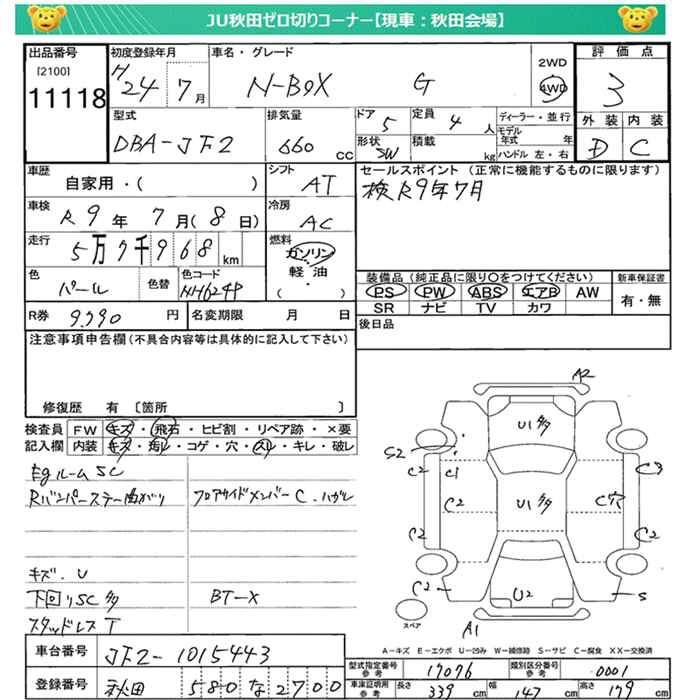 JU秋田ゼロ切りコーナー【現車：秋田会場】
出品番号 初度登録年月 車名・グレード 2WD 評価点
[2100] 11118 H24 7月 N-BOX G 4WD 3
型式 排気量 ドア 定員 ディーラー・並行 外装 内装
DBA-JF2 660 CC 5 4人 モデル年式 年 D C
形状 SW 積載 kg ハンドル 左・右
車歴 シフト セールスポイント（正常に機能するものに限ります）
自家用・( ) AT 検R9年7月
車検 冷房
R9年7月(8日) AC
走行 燃料
5万7千968km ガソリン
軽油
・
( )
色 色替 色コード 装備品（純正品に限り〇をつけてください） 新車保証書
パール NH624P PS PW ABS エアB AW 有・無
SR ナビ TV カワ
R券 9,990円 名変期限 月 日 後日品
注意事項申告欄（不具合内容等は具体的に記入して下さい）
修復歴 有 〔箇所 〕
検査員 FW キズ・飛石・ヒビ割・リペア跡・×要
記入欄 内装 キズ・汚レ・コゲ・穴・スレ・キレ・破レ
EgルームSC
Rバンパーステー曲がり フロアサイドメンバーC・ハガレ
キズ.U
下回りSC多 BT-X
スタッドレスT
A2
U1多
S2
C2 C1 C3
C2 U1多 C穴
C2 C2
C2 U2 S
スペア A1
A－キズ E－エクボ U－凹み W－補修跡 S－サビ C－腐食 XX－交換済
車台番号 JF2-1015443
型式指定番号 参考 17076 類別区分番号 参考 0001
登録番号 秋田 580 な 2700
車庫証明用 参考 長さ 339cm 幅 147cm 高さ 179cm